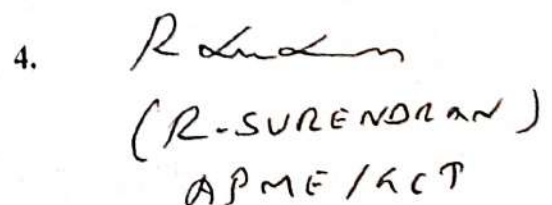 4.
(R-SURENDRAN)
APME/KCT